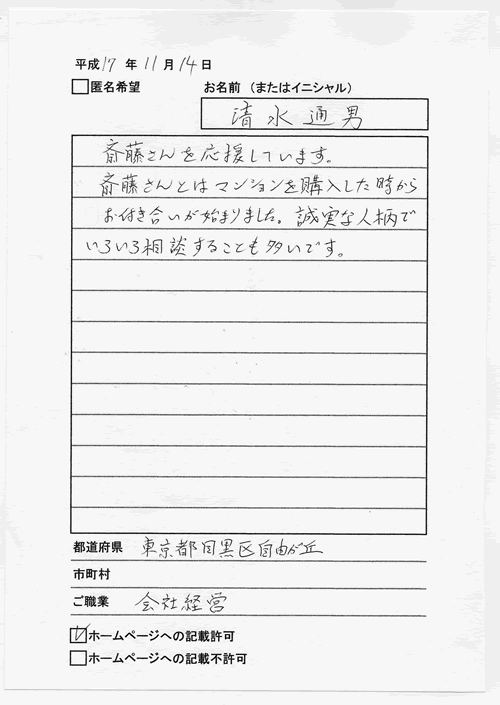 平成17年11月14日
□匿名希望 お名前（またはイニシャル）
清水通男
斎藤さんを応援しています。
斎藤さんとはマンションを購入した時から
お付き合いが始まりました。誠実な人柄で
いろいろ相談することも多いです。
都道府県 東京都目黒区自由が丘
市町村
ご職業 会社経営
☑ホームページへの記載許可
□ホームページへの記載不許可